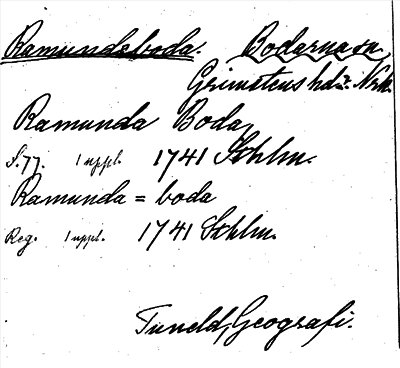 Ramundeboda. Bodarna sn,
Grimstens hd. Nrk.
Ramunda Boda,
S. 77. 1 uppl. 1741 Sthlm.
Ramunda = boda
Reg. 1 uppl. 1741 Sthlm.
Tuneld, Geografi.